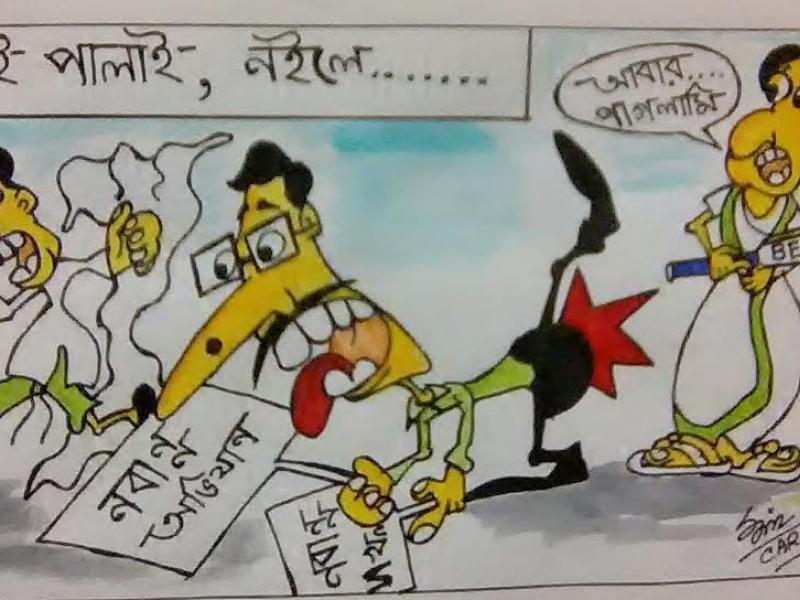 ই পালাই, নইলে........
আবার....
পাগলামি
BE
নবান্ন
অভিযান
নবান্ন
CAR